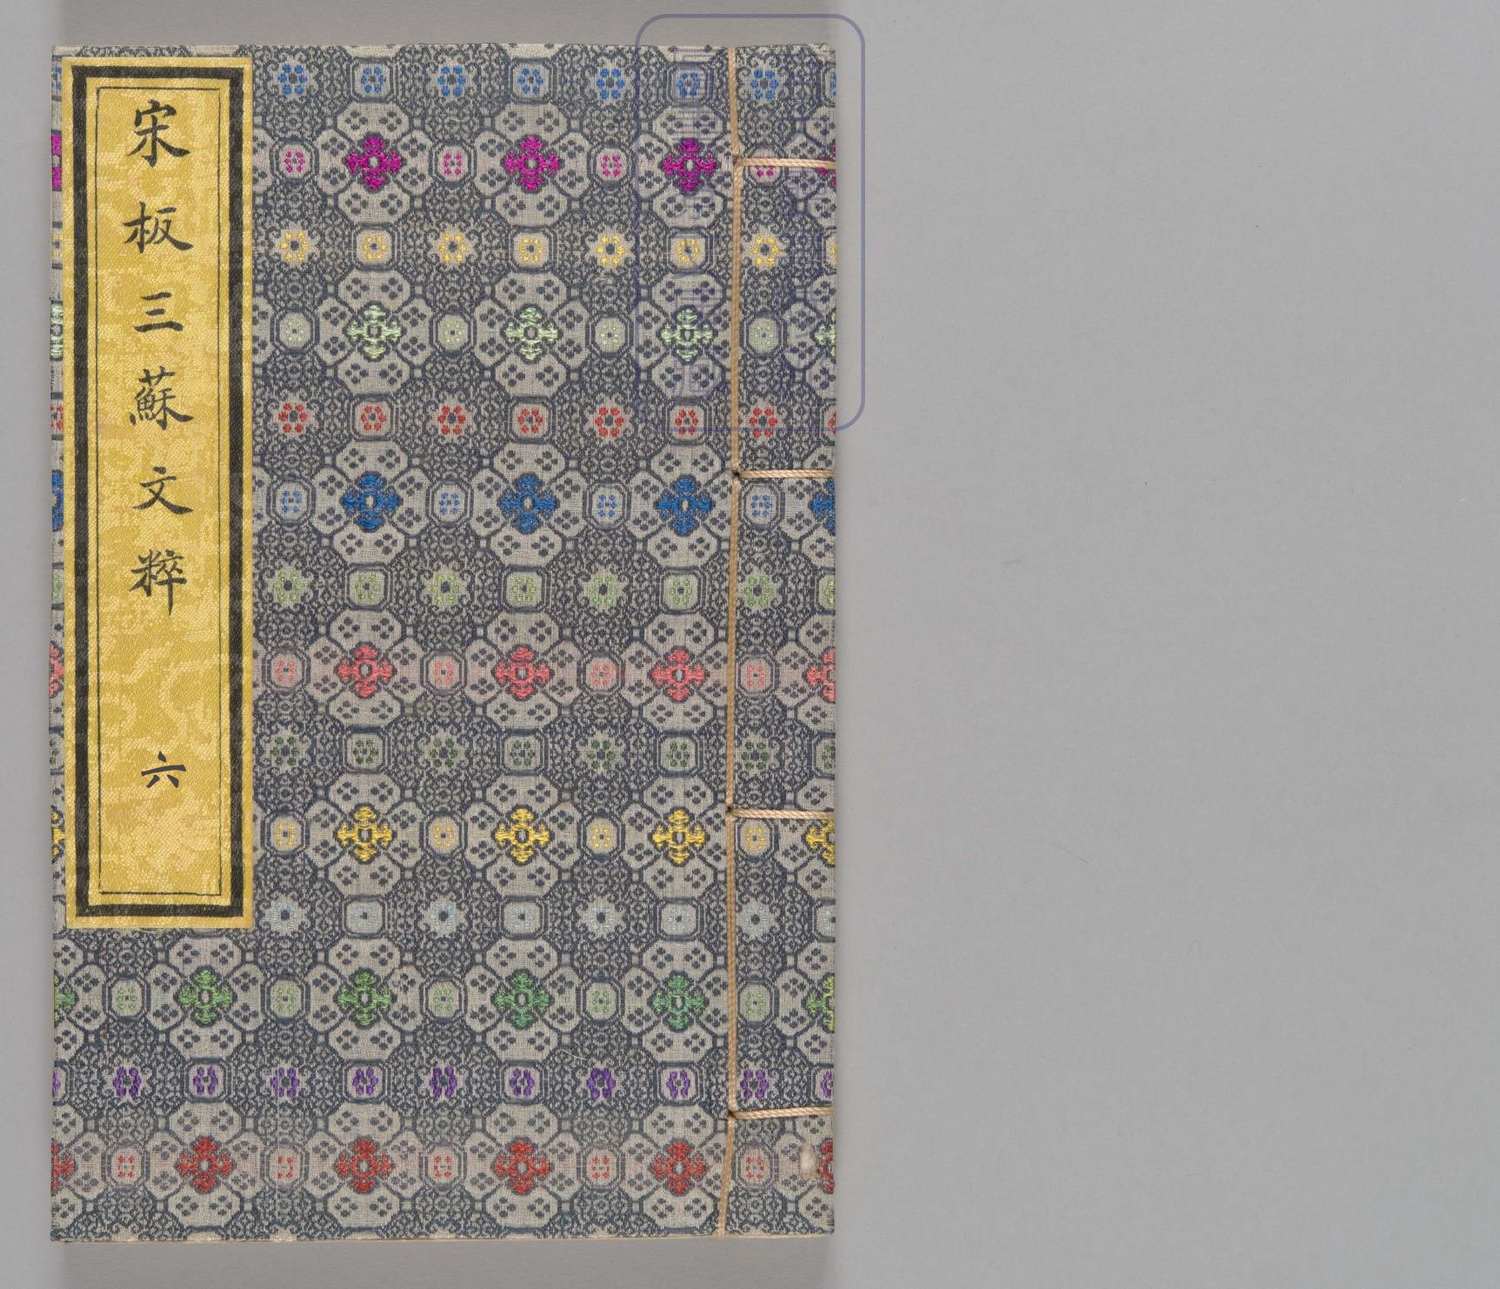 宋板三蘇文粹 六